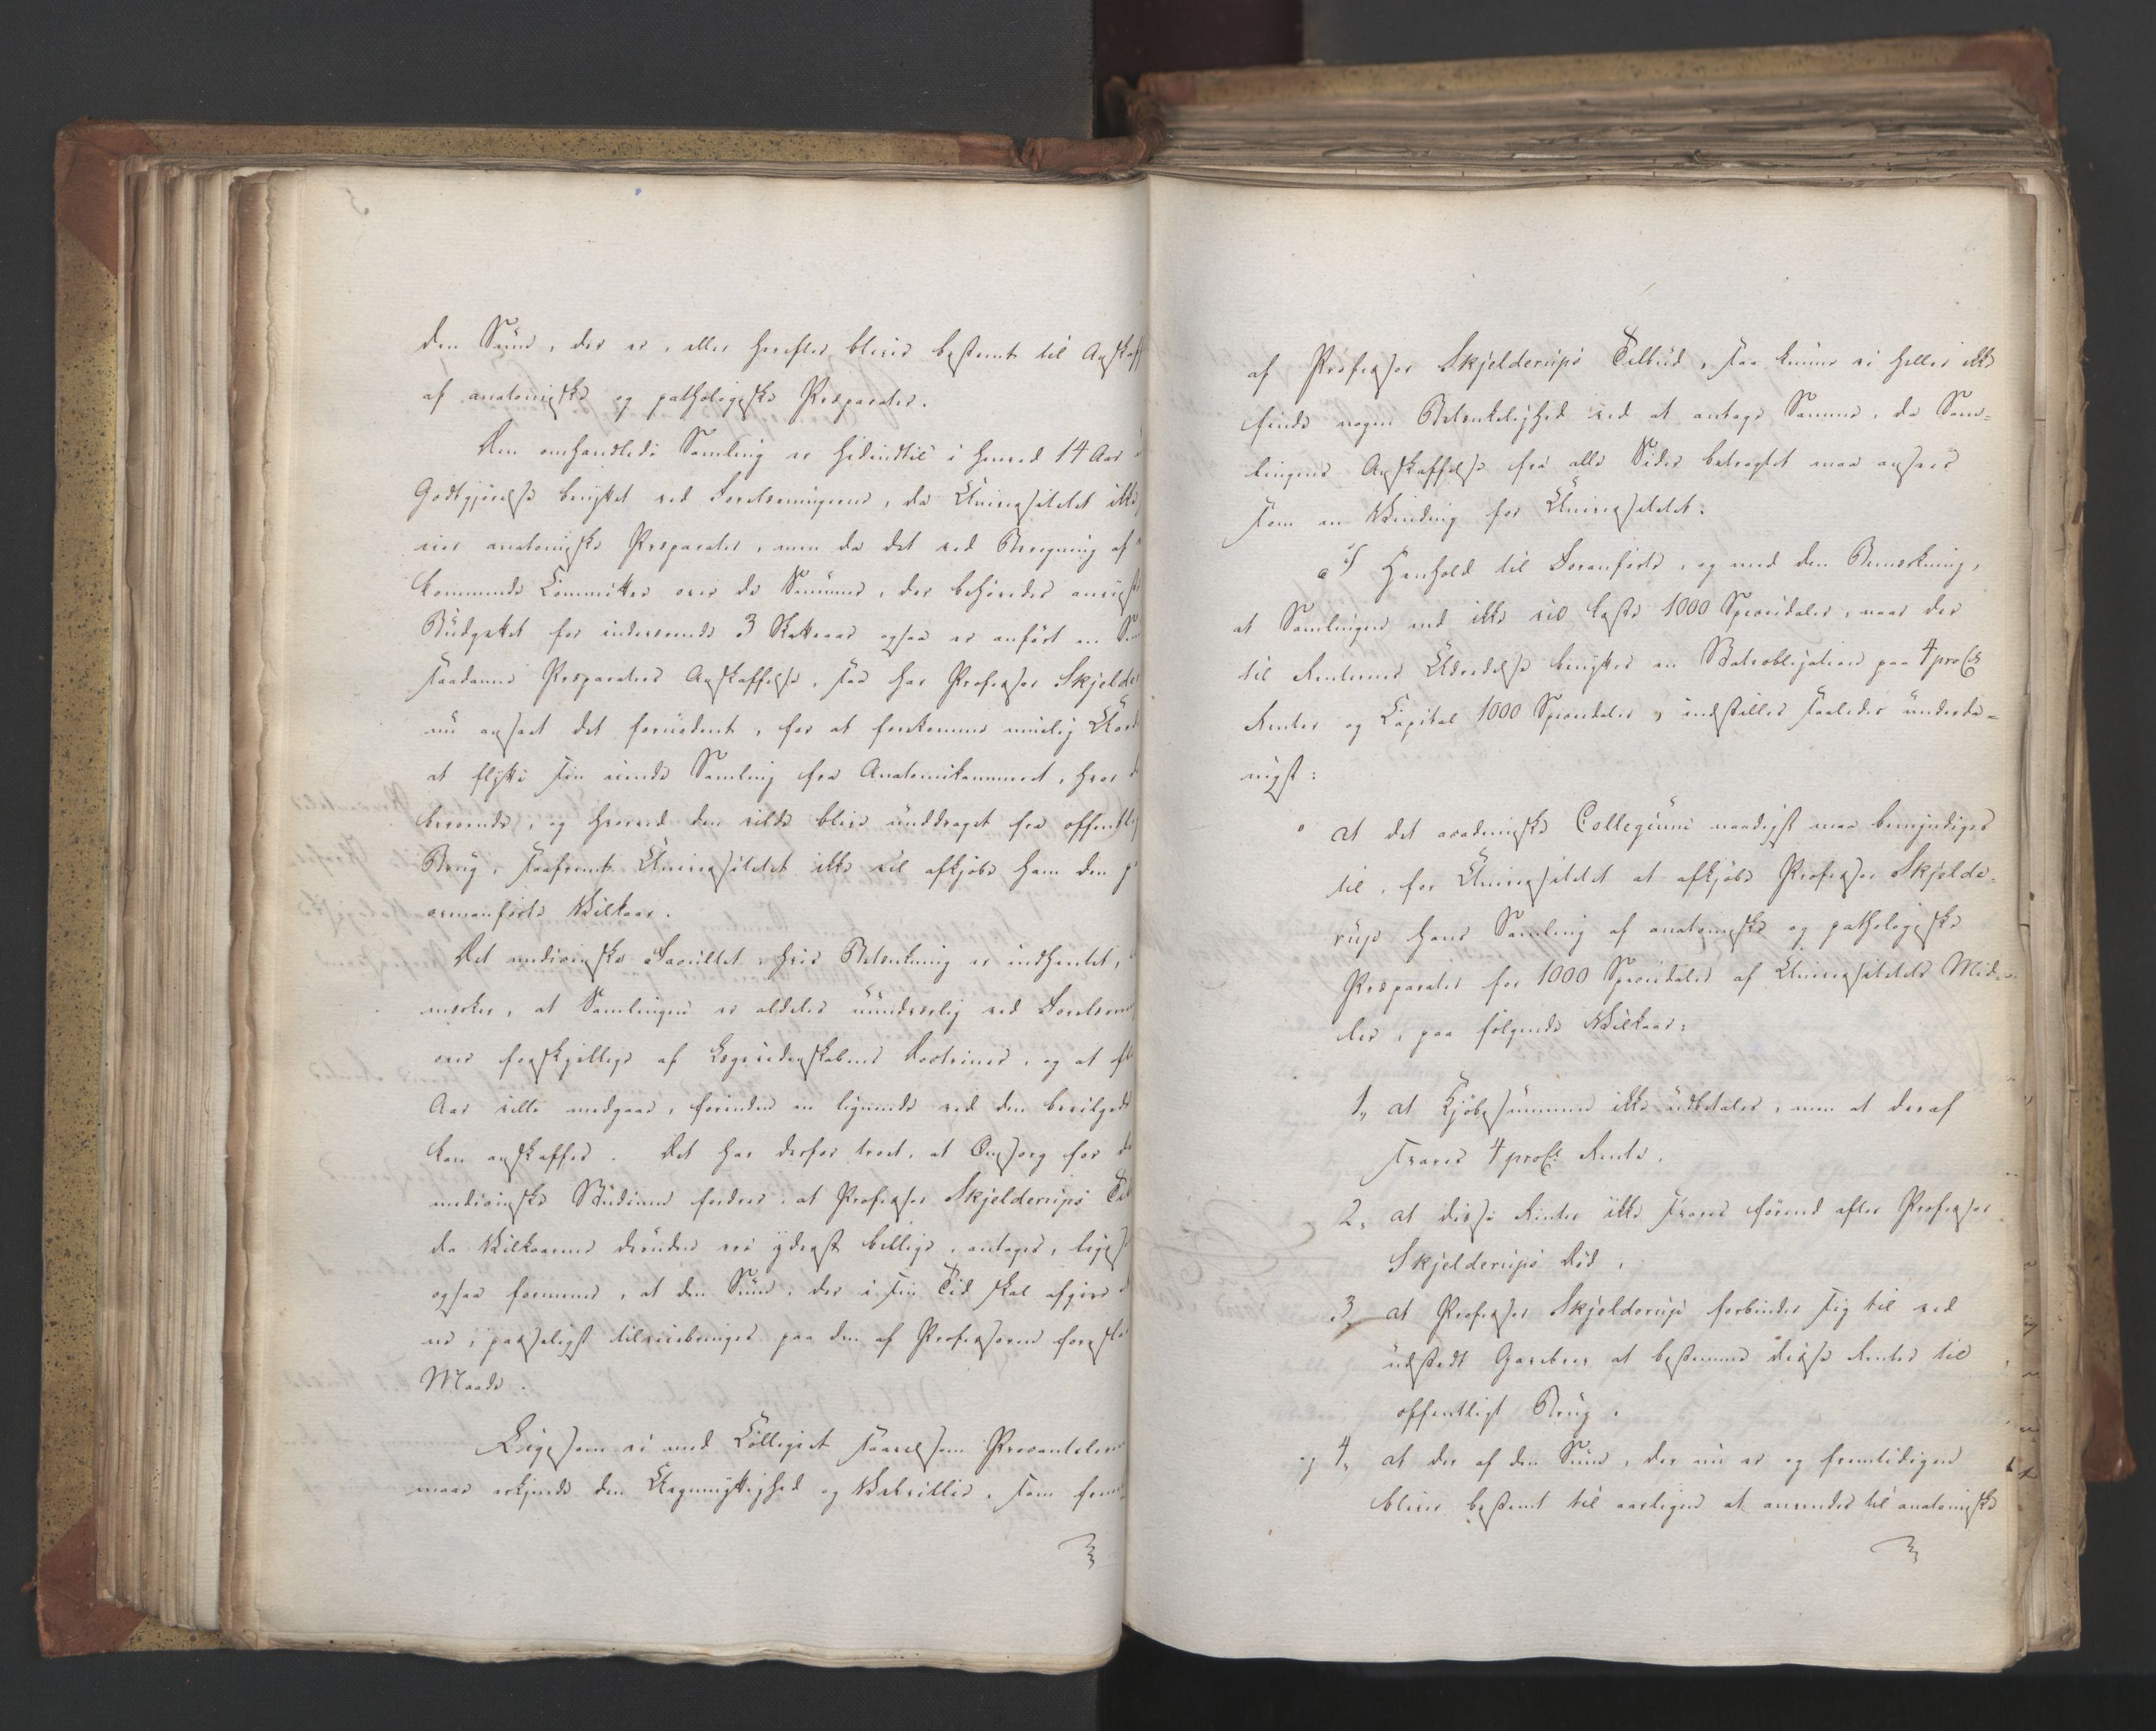 den Sum, der er, eller herefter bliver bestemt til Anskaff
af anatomiske og pathologiske Præparater.
Den omhandlede Samling er hidindtil i henved 14 Aar
Godtgjørelse benyttet ved Forelæsningerne, da Universitetet ikke
eier anatomiske Præparater, men da det ved Beregning af
kommende Committee over de Summer, der behøvedes
Budgettet for indeværende 3 Skatteaar ogsaa er anført en Sum
saadanne Præparaters Anskaffelse, saa har Professor Skjelde
nu anseet det fornødent, for at forekomme muelig Uord
at flytte sin eiende Samling fra Anatomikammeret, hvor
beroende, og hvorved den vilde blive unddraget fra offentlig
Brug, saafremt Universitetet ikke vil afkjøbe ham den
ovenanførte Vilkaar.
Det medicinske Facultet, hvis Betænkning er indhentet,
mærker, at Samlingen er aldeles uundværlig ved Forelæsn
over forskjellige af Lægevidenskabens Doctriner, og at fl
Aar ville medgaae, forinden en lignende ved den bevilgede
kan anskaffes. Det har derfor troet, at Omsorg for
medicinske Studium fordrer, at Professor Skjelderups Til
da Vilkaarene desuden ere yderst billige, antages, liges
ogsaa formener, at den Sum, der i sin Tid skal afgives
es, passeligst tilveiebringes paa den af Professoren foresla
Maade.
Ligesom vi med Collegiet saavelsom Procantsleren
maae erkjende den Uegennyttighed og Velvillie, som frem-
af Professor Skjelderups Tilbud, saa kunne vi heller ikke
finde nogen Betænkelighed ved at antage Samme, da Sam-
lingens Anskaffelse fra alle Sider betragtet maa ansees
som en Vinding for Universitetet.
I Henhold til Foranførte, og med den Bemærkning,
at Samlingen ved ikke vil koste 1000 Speciedaler, naar der
til Renternes Udredelse benyttes en Statsobligation paa 4 proCt
Renter og Capital 1000 Speciedaler, indstilles saaledes underda-
nigst:
at det academiske Collegium naadigst maa bemyndiges
til, for Universitetet at afkjøbe Professor Skjelde-
rup hans Samling af anatomiske og pathologiske
Præparater for 1000 Speciedaler af Universitetets Mid-
ler, paa følgende Vilkaar:
1, at Kjøbesummen ikke udbetales, men at deraf
svares 4 proCt Rente.
2, at disse Renter ikke svares førend efter Professor
Skjelderups Død,
3, at Professor Skjelderup forbinder sig til ved
udstedt Gavebrev at bestemme disse Renter til
offentligt Brug.
og 4, at der af den Sum, der nu er og fremtidigen
bliver bestemt til aarligen at anvendes til anatomiske